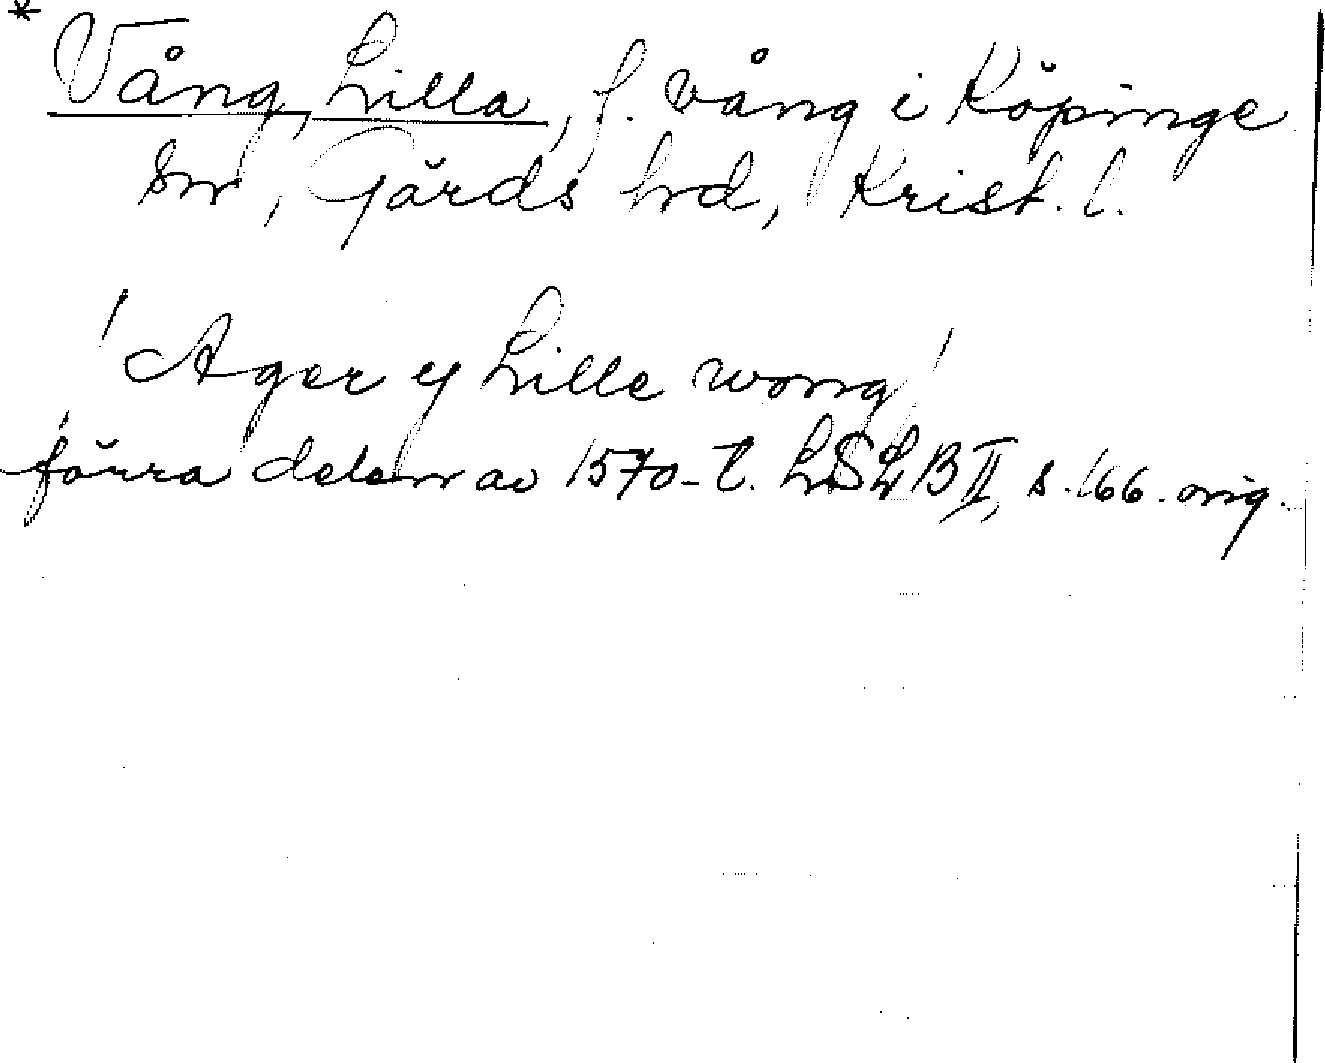 * Vång, Lilla, f. vång i Köpinge
sn, Gärds hd, Krist. l.
'Ager y Lille wong'
förra delen av 1570-t. LSLB II, s. 166. orig.